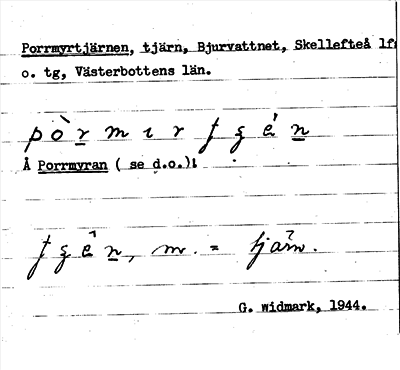 Porrmyrtjärnen, tjärn, Bjurvattnet, Skellefteå lf
o. tg, Västerbottens län.
pòrmır
Å Porrmyran ( se d.o.):
m. = tjärn.
G. Widmark, 1944.